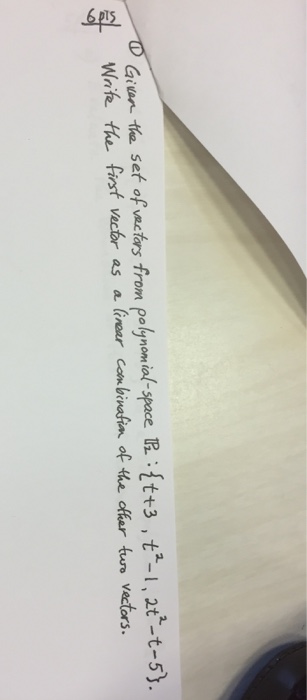 ① Given the set of vectors from polynomial-space ℙ₂ : {t+3 , t²-1, 2t²-t-5}.
6pts Write the first vector as a linear combination of the other two vectors.